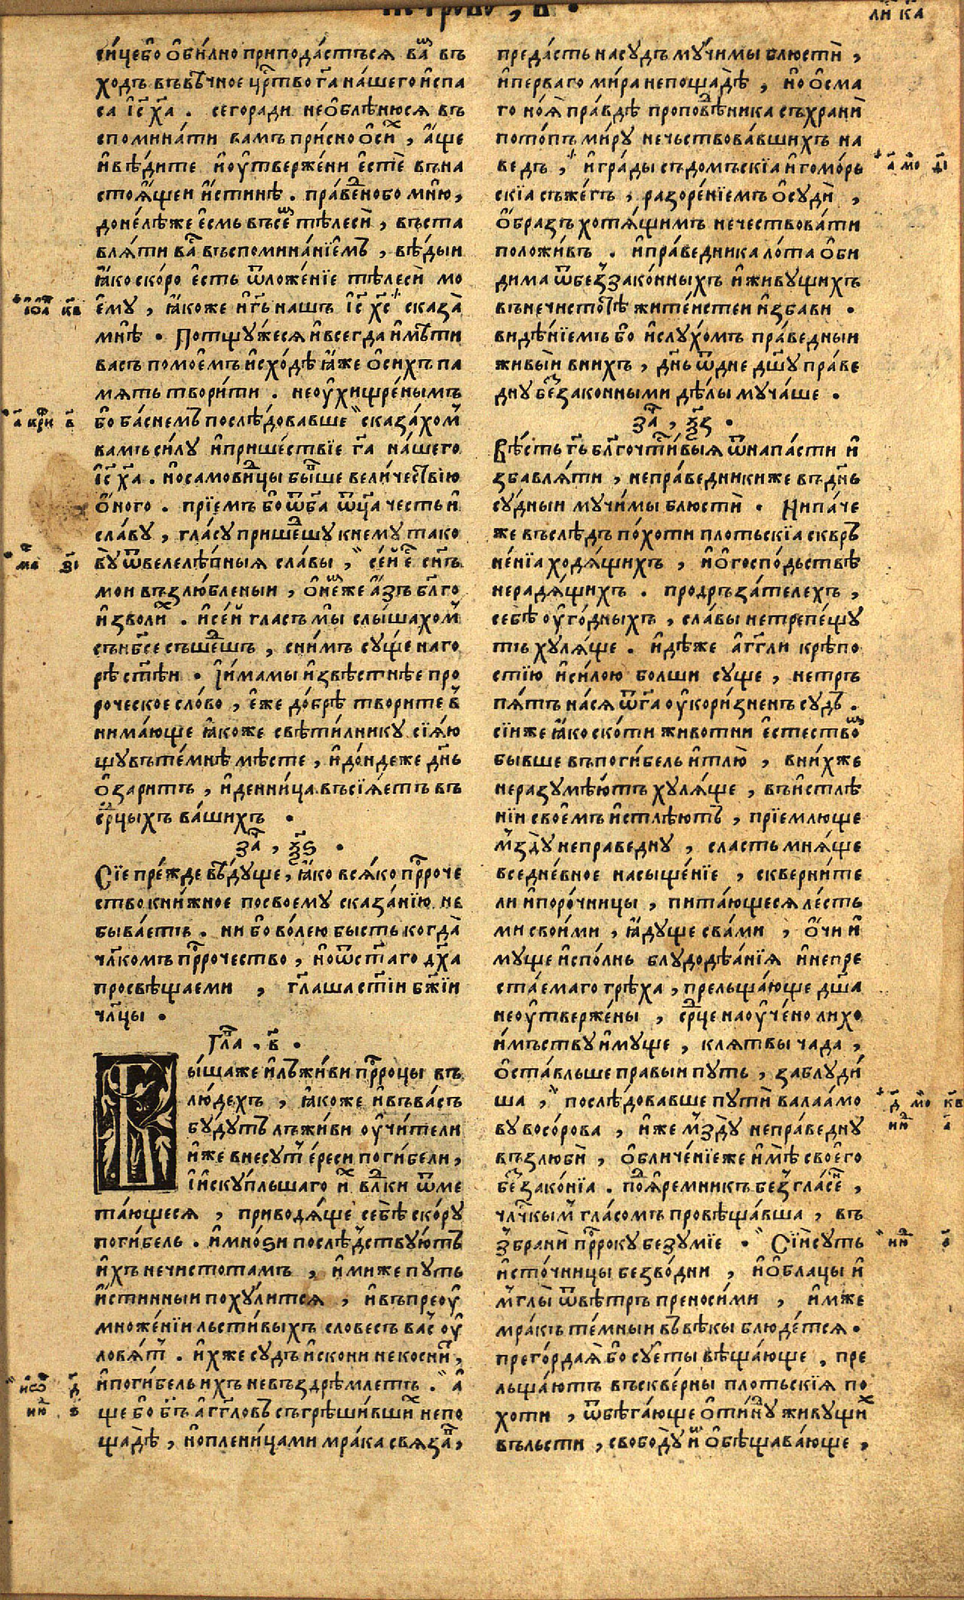 ли́ ка
сиценбо ѻ҆би́лно приподастъсѧ ва́ⷨ въ
ходъ въвѣ́чное цр҃тво га҃ на́шего и҆спа
са і҆с҃ ха҃ . сегоради необлѣню́сѧ въ
спомина́ти вамъ при́сно ѻ҆си́ⷯ , а҆́ще
и҆вѣ́дите и҆оу҆тверже́ни є҆стѐ въна
стоѧ́щеи и҆́стинѣ . пра́веⷣнобо мню̀ ,
донелѣ́же є҆смь въсе́ⷨ тѣлесѝ , въста
влѧ́ти ва́ⷭ въспомина́нїемъ , вѣ́дыи
ꙗ҆́ко ско́ро є҆сть ѿложе́нїе тѣлесѝ мо
є҆мꙋ̀ , ꙗ҆́коже и҆гь҃ нашъ і҆с҃ хс҃ сказа̀
мнѣ̀ . Потщꙋ́жесѧ и҆всегда̀ и҆мѣ́ти
васъ помое́мъ и҆схо́дѣ ꙗ҆́же ѻ҆сихъ па
мѧть твори́ти . неоу҆хищре́нымъ
бо ба́снемъ послѣ́довавше сказа́хоⷨ
вамъ си́лꙋ и҆прише́ствїе га҃ на́шего
і҆с҃ ха҃ . но̀самови́дцы бы́вше вели́чествїю
ѻ҆ного . прїе́мъ бо ѿба҃ ѿц҃а че́сть и҆
сла́вꙋ , гла́сꙋ прише́дшꙋ кнемꙋ̀ тако
вꙋ̀ ѿвелелѣ́пныѧ сла́вы , се́й є҆́ⷭ сн҃ъ
мои възлю́бленыи , ѻ҆не́мже а҆́зъ бл҃го
и҆зво́лиⷯ . и҆се́й гла́съ мы̀ слы́шахоⷨ
съ нб҃се съше́дшъ , сни́мъ сꙋ́ще наго
рѣ̀ ст҃ѣи . І҆и҆мамы и҆звѣ́стнѣе про
роческое сло́во , є҆́же до́брѣ твори́те в
нима́юще ꙗ҆́коже свѣти́лникꙋ сїѧ́ю
щꙋ вътемнѣ мѣ́сте , и҆до́ндеже дн҃ь
ѻ҆зари́тъ , и҆денни́ца въсїѧ́етъ въ
срⷣцыхъ ва́шихъ .
за҃ⷱ , ѯ҃ѕ .
Сїе пре́жде вѣ́дꙋще , ꙗ҆́ко всѧ́ко прⷪ҇роче
ство кни́жное посвоемꙋ сказа́нїю не
быва́етъ . ни бо во́лею бы́сть когда̀
чл҃комъ прⷪ҇рочество , но̀ѿст҃аго дх҃а
просвѣща́еми , гл҃аша ст҃іи бж҃їи
чл҃цы .
Гла҃ . в҃ .
Бы́шаже и҆лъжи́ви прⷪ҇роцы въ
лю́дехъ , ꙗ҆́коже и҆въва́съ
бꙋ́дꙋтъ лъжи́ви оу҆чи́тели
и҆́же внесꙋ́тъ є҆ре́си поги́бели ,
і҆и҆скꙋ́пльшаго и҆́ⷯ влⷣки ѿме
та́ющесѧ , приводѧ́ще себѣ̀ ско́рꙋ
поги́бель . и҆мно́зи послѣ́дствꙋютъ
и҆́хъ нечистота́мъ , и҆́миже пꙋ́ть
и҆́стинныи похꙋ́литсѧ , и҆въпреоу҆
множе́нїи льсти́выхъ словесъ ва́ⷭ оу҆
ловѧ́тъ . и҆́хже сꙋ́дъ и҆скони некоснитъ ,
и҆поги́бель и҆хъ невъздрѣ́млетъ . а҆́
ще бо бг҃ъ а҆́гг҃ловъ съгрѣши́вшиⷯ непо
щадѣ̀ , но̀плени́цами мра́ка свѧза́въ ,
преда́сть насꙋ́дъ мꙋ́чимы блюстѝ ,
и҆перваго ми́ра непощадѣ̀ , но̀ ѻ҆сма
го но́ѧ пра́вдѣ проповѣ́дника съхранѝ
пото́пъ ми́рꙋ нечьствова́вшихъ на
ведъ , и҆гра́ды содо́мьскїѧ и҆гомо́рь
скїѧ съжегъ , разоре́нїемъ ѻ҆сꙋдѝ ,
ѻ҆́бразъ хотѧ́щимъ нечествова́ти
положи́въ . и҆пра́ведника ло́та ѻ҆би
дима ѿбеззако́нныхъ и҆живꙋ́щихъ
вънечистотѣ̀ житеистеи и҆зба́ви .
видѣ́нїемъ бо и҆слꙋ́хомъ пра́ведныи
живы́и вни́хъ , дн҃ь ѿдне дш҃ꙋ пра́ве
днꙋ беззако́нными дѣ́лы мꙋ́чаше .
за҃ⷱ , ѯ҃з .
Вѣ́сть гь҃ бл҃гочⷭ҇ти́выѧ ѿнапа́сти и҆
збавлѧ́ти , непра́ведникиже въ дн҃ь
сꙋ́дныи мꙋ́чимы блюстѝ . Нипа́че
же въслѣ́дъ по́хоти пло́тьскїѧ скврь
не́нїѧ ходѧ́щихъ , и҆ѻ҆госпо́дьствѣ
нерадѧ́щихъ . продръза́телехъ ,
себѣ̀ оу҆го́дныхъ , сла́вы нетрепе́щꙋ
тъ хꙋ́лѧще . и҆дѣ́же а҆́гг҃ли крѣ́по
стїю и҆си́лою болши сꙋ́ще , нетръ
пѧ́тъ насѧ̀ ѿга҃ оу҆кори́зненъ сꙋ́дъ .
сїи́же ꙗ҆́ко ско́ти живо́тни є҆стествоⷨ
бывше въпоги́бель и҆тлю̀ , вни́хже
неразꙋмѣ́ютъ хꙋ́лѧще , въи҆стлѣ
нїи свое́мъ и҆стлѣ́ютъ , прїе́млюще
мздꙋ̀ непра́веднꙋ , сла́сть мнѧ́ще
вседне́вное насыще́нїе , скве́рните
ли и҆поро́чницы , пита́ющесѧ ле́сть
ми свои́ми , ꙗ҆дꙋ́ще сва́ми , ѻ҆́чи и҆
мꙋще и҆спо́лнь блꙋдодѣѧ́нїѧ и҆непре
ста́емаго грѣха , прельща́юще дш҃а
неоу҆тверже́ны , срⷣце наоу҆че́но ли́хо
и҆мъствꙋ и҆мꙋще , клѧ́твы ча́да ,
ѻ҆ста́вльше пра́выи пꙋть , заблꙋди́
ша , послѣ́довавше пꙋтѝ валаа́мо
вꙋ восо́рова , и҆́же мздꙋ̀ непра́веднꙋ
възлюбѝ , ѻ҆бличе́нїеже и҆мѣ̀ своего̀
беззако́нїѧ . поⷣѧремникъ безгласе́нъ ,
чл҃чкымъ гла́сомъ провѣща́вша , въ
збранѝ прⷪ҇рокꙋ безꙋ́мїе . Сїи́сꙋть
и҆сто́чницы безво́дни , и҆ѻ҆́блацы и҆
мглы ѿвѣ́тръ преноси́ми , и҆́мже
мра́къ те́мныи въвѣ́кы блюде́тсѧ .
прего́рдаѧ̀ бо сꙋеты вѣща́юще , пре
льща́ютъ въскве́рны пло́тьскїѧ по́
хоти , ѿбѣга́юще ѻ҆ти́нꙋдꙋ живꙋ́щиⷯ
вольсти , свобо́дꙋ и҆́ⷨ ѻ҆бѣщава́юще ,